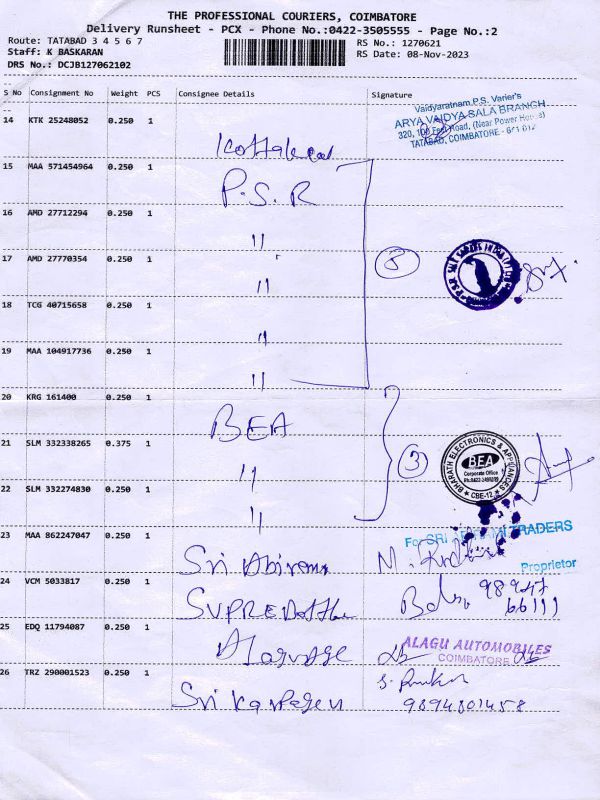 THE PROFESSIONAL COURIERS, COIMBATORE
Delivery Runsheet - PCX - Phone No.:0422-3505555 - Page No.:2
Route: TATABAD 3 4 5 6 7
RS No.: 1270621
Staff: K BASKARAN
RS Date: 08-Nov-2023
DRS No.: DCJB127062102
S No Consignment No Weight PCS Consignee Details Signature
Vaidyaratnam P.S. Varier's
ARYA VAIDYA SALA BRANCH
14 KTK 25248052 0.250 1
320, 100 Feet Road, (Near Power House)
TATABAD, COIMBATORE - 641 012
15 MAA 571454964 0.250 1
P.S.R
16 AMD 27712294 0.250 1
"
17 AMD 27770354 0.250 1
5
"
18 TCG 40715658 0.250 1
"
19 MAA 104917736 0.250 1
"
20 KRG 161400 0.250 1
BEA
21 SLM 332338265 0.375 1
3
BHARATH ELECTRONICS & APPLIANCES
BEA
Corporate Office
CBE-12
"
22 SLM 332274830 0.250 1
"
23 MAA 862247047 0.250 1
For SRI TRADERS
Sri Abirami
Proprietor
24 VCM 5033817 0.250 1
98947
66111
25 EDQ 11794087 0.250 1
ALAGU AUTOMOBILES
COIMBATORE
26 TRZ 290001523 0.250 1
Sri
9894801458